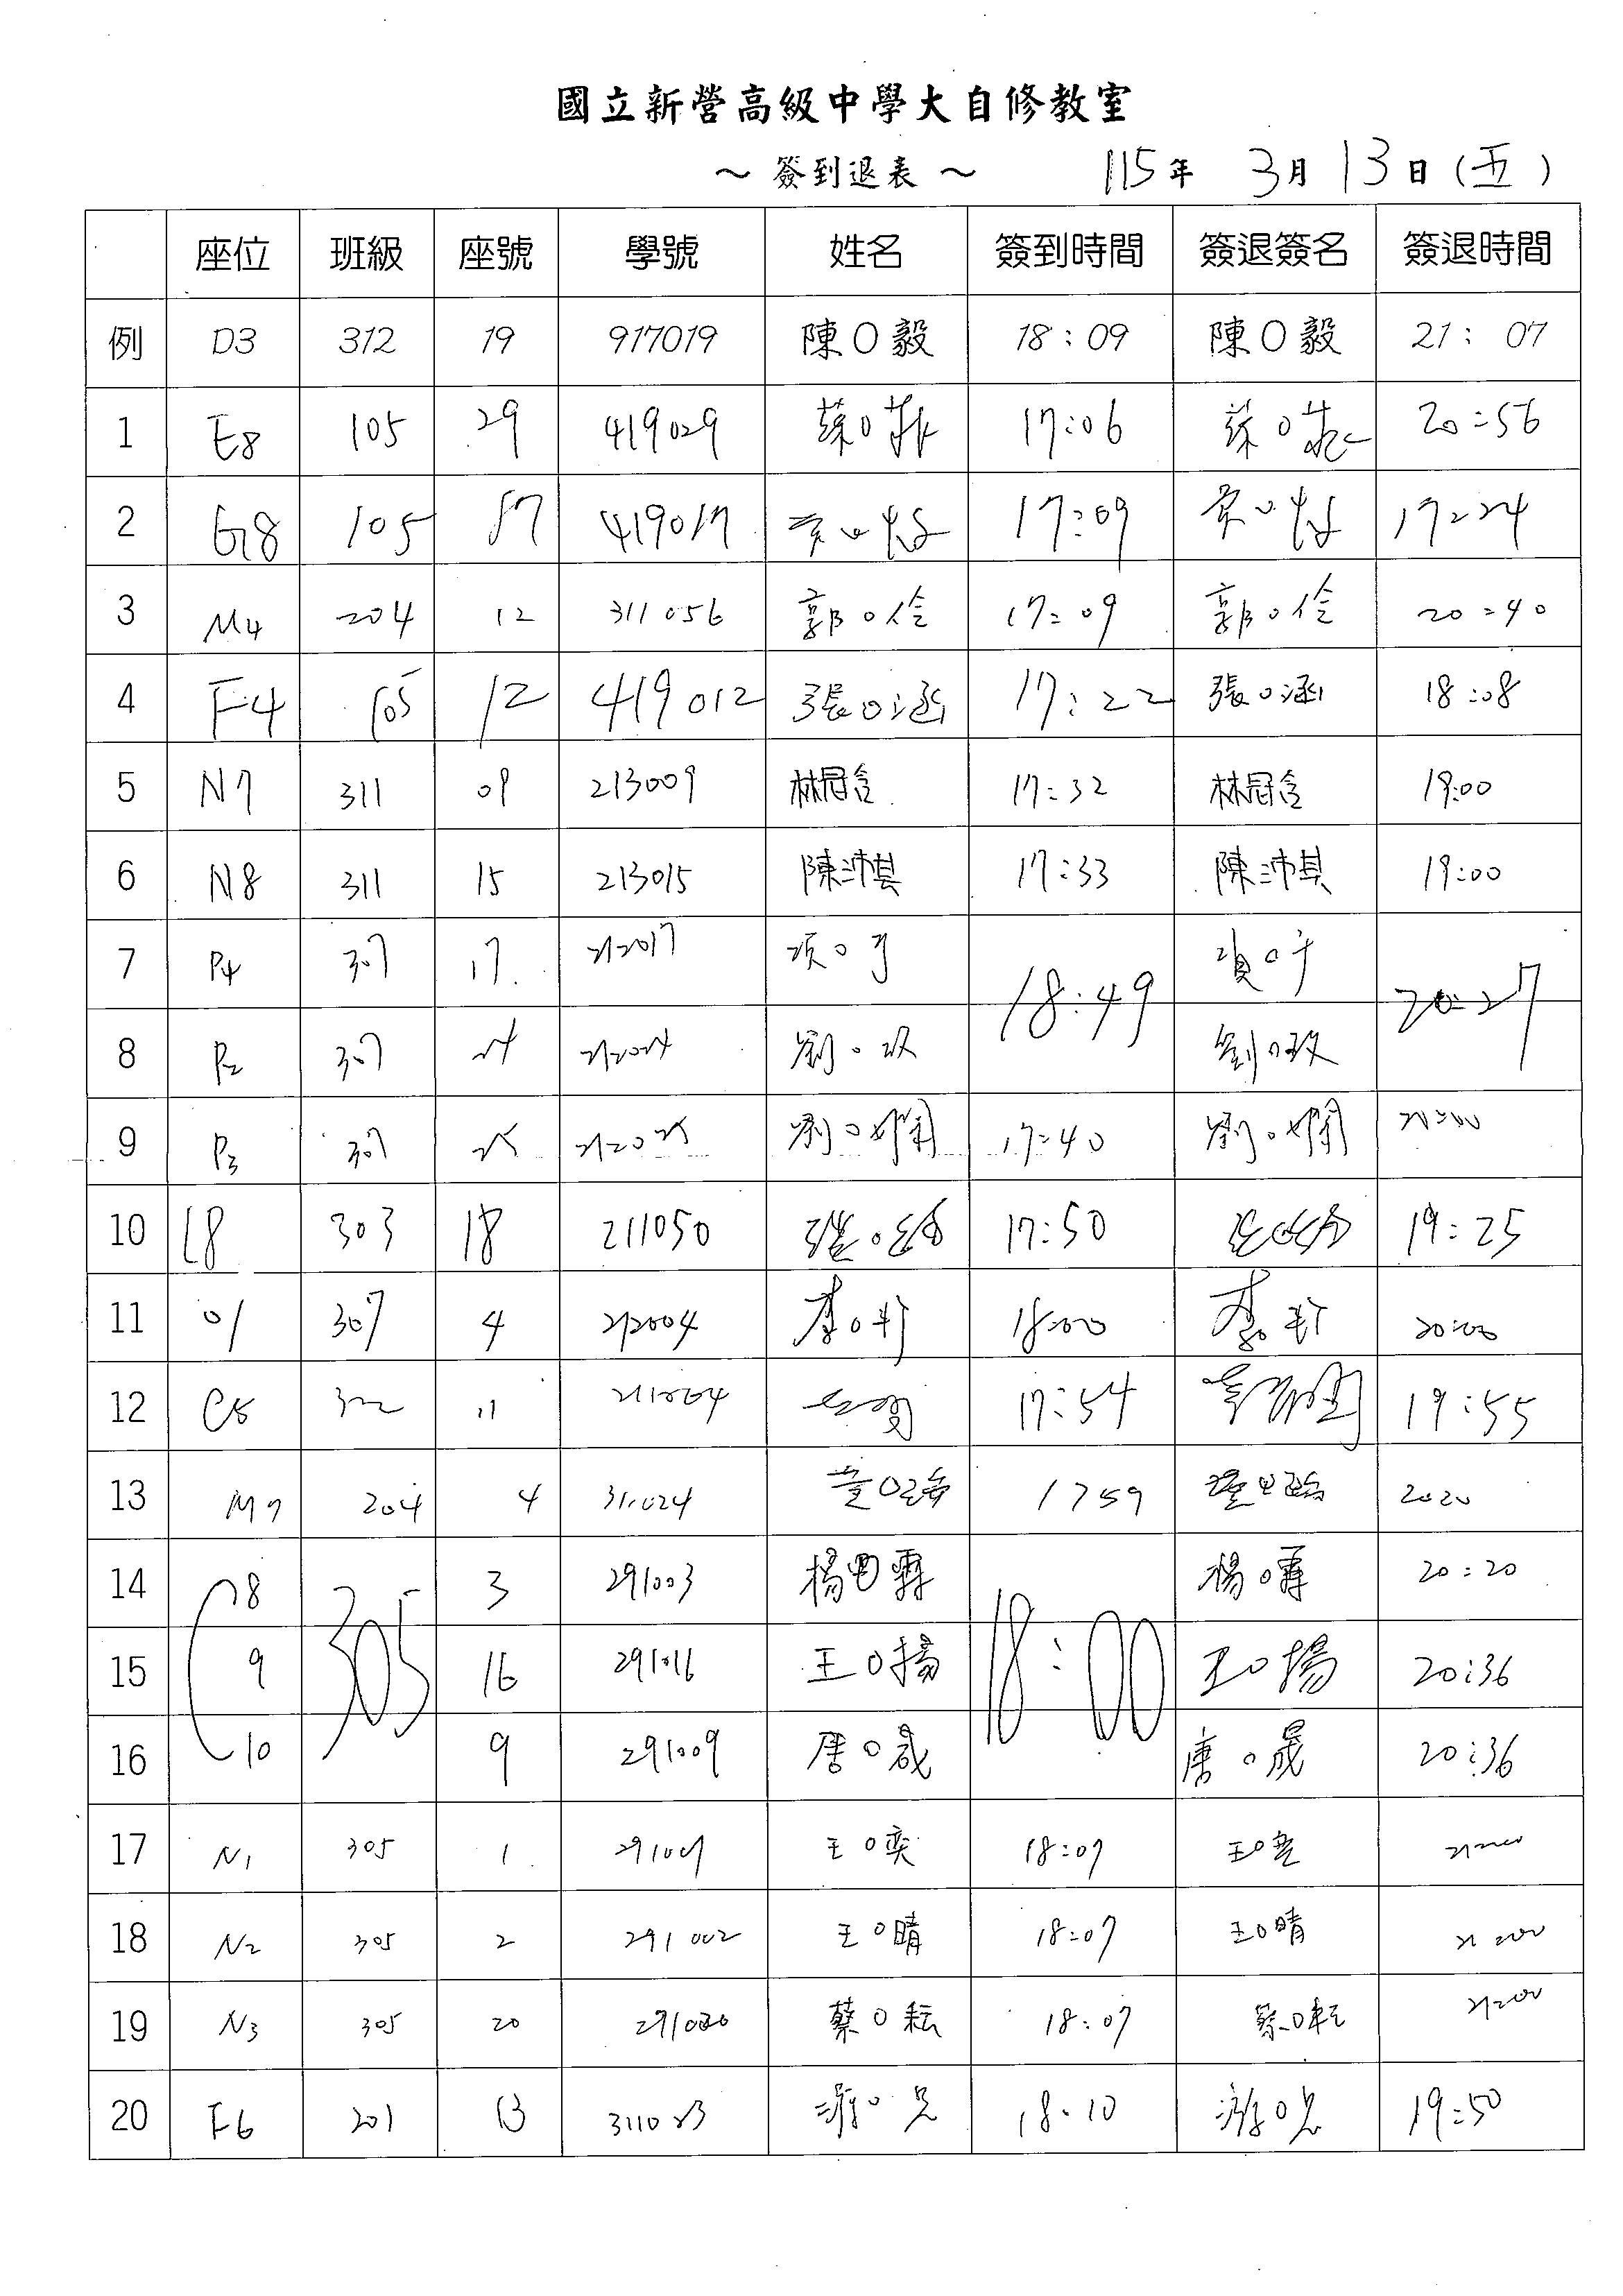 國立新營高級中學大自修教室
～簽到退表～ 115年 3月13日(五)
座位 班級 座號 學號 姓名 簽到時間 簽退簽名 簽退時間
例 D3 312 19 917019 陳〇毅 18:09 陳〇毅 21:07
1 E8 105 29 419029 蔡〇 17:06 蔡〇 20:56
2 G8 105 17 419017 17:09 17:24
3 M4 204 12 311056 郭〇倫 17:09 郭〇倫 20:40
4 F4 105 12 419012 張〇涵 17:22 張〇涵 18:08
5 N7 311 09 213009 林冠含 17:32 林冠含 19:00
6 N8 311 15 213015 陳沛淇 17:33 陳沛淇 19:00
7 P4 307 17 212017 項〇于 18:49 項〇于 20:27
8 P2 307 24 212024 劉〇玟 劉〇玟
9 P3 307 25 212025 劉〇嫻 17:40 劉〇嫻 21:00
10 L8 303 18 211050 17:50 19:25
11 O1 307 4 212004 李〇 18:00 李〇 20:00
12 C5 302 11 17:54 19:55
13 M7 204 4 311024 1759 2020
14 8 305 3 291003 楊〇霖 18:00 楊〇 20:20
15 9 16 291016 王〇揚 王〇揚 20:36
16 10 9 291009 唐〇晟 唐〇晟 20:36
17 N1 305 1 291001 王〇奕 18:07 王〇奕 21:00
18 N2 305 2 291002 王〇晴 18:07 王〇晴 21:00
19 N3 305 20 291020 蔡〇耘 18:07 蔡〇耘 21:00
20 F6 201 13 311023 游〇 18:10 游〇 19:50